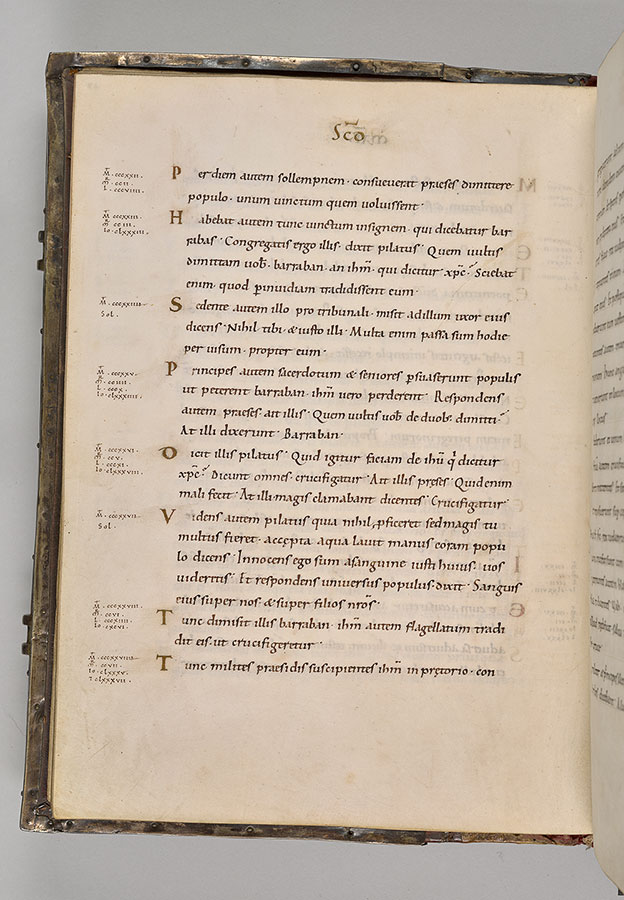 Scd̄
Per diem autem sollempnem · consueuerat praeses dimittere
populo · unum uinctum quem uoluissent ·
Habebat autem tunc uinctum insignem · qui dicebatur bar
rabas · Congregatis ergo illis · dixit pilatus · Quem uultis
dimittam uob̄ · barraban · an ih̄m · qui dicitur xp̄c · Sciebat
enim · quod p inuidiam tradidissent eum ·
Sedente autem illo pro tribunali · misit ad illum uxor eius
dicens · Nihil tibi · & iusto illi · Multa enim passa sum hodie
per uisum · propter eum ·
Principes autem sacerdotum & seniores p suaserunt populis
ut peterent barraban · ih̄m uero perderent · Respondens
autem praeses · ait illis · Quem uultis uob̄ de duob; dimitti ·
At illi dixerunt · Barraban ·
Dicit illis pilatus · Quid igitur faciam de ih̄u q̄ dicitur
xp̄c · Dicunt omnes · crucifigatur · Ait illis preses · Quid enim
mali fecit · At illi magis clamabant dicentes · Crucifigatur ·
Videns autem pilatus quia nihil pficeret sed magis tu
multus fieret · accepta aqua lauit manus coram popu
lo dicens · Innocens ego sum a sanguine iusti huius · uos
uideritis · Et respondens uniuersus populus · dixit · Sanguis
eius super nos · & super filios nr̄os ·
Tunc dimisit illis barraban · ih̄m autem flagellatum tradi
dit eis · ut crucifigeretur ·
Tunc milites praesidis suscipientes ih̄m in pretorio · con